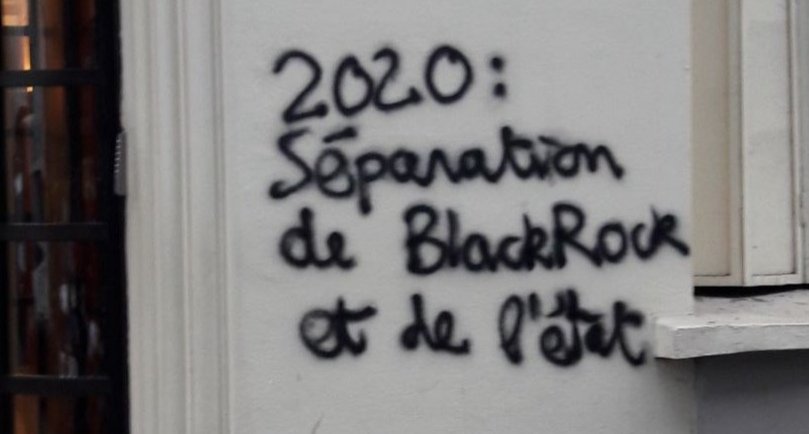 2020:
Séparation
de BlackRock
et de l'état